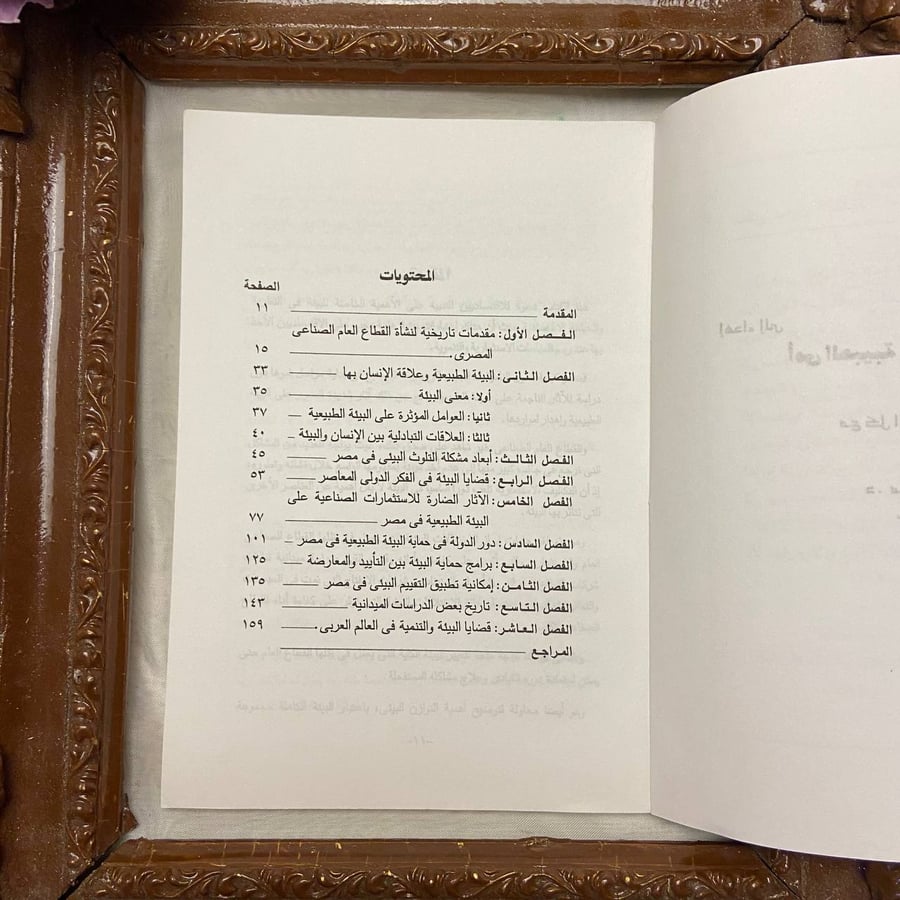 المحتويات
الصفحة
المقدمة ١١
الفصل الأول: مقدمات تاريخية لنشأة القطاع العام الصناعى
المصرى. ١٥
الفصل الثانى: البيئة الطبيعية وعلاقة الإنسان بها ٣٣
أولا: معنى البيئة ٣٥
ثانيا: العوامل المؤثرة على البيئة الطبيعية ٣٧
ثالثا: العلاقات التبادلية بين الإنسان والبيئة ٤٠
الفصل الثالث: أبعاد مشكلة التلوث البيئى فى مصر ٤٥
الفصل الرابع: قضايا البيئة فى الفكر الدولى المعاصر ٥٣
الفصل الخامس: الآثار الضارة للاستثمارات الصناعية على
البيئة الطبيعية فى مصر ٧٧
الفصل السادس: دور الدولة فى حماية البيئة الطبيعية فى مصر ١٠١
الفصل السابع: برامج حماية البيئة بين التأييد والمعارضة ١٢٥
الفصل الثامن: إمكانية تطبيق التقييم البيئى فى مصر ١٣٥
الفصل التاسع: تاريخ بعض الدراسات الميدانية ١٤٣
الفصل العاشر: قضايا البيئة والتنمية فى العالم العربى. ١٥٩
المراجع